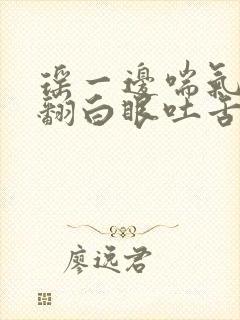 瑶一邊喘氣
翻白眼吐舌
廖远君